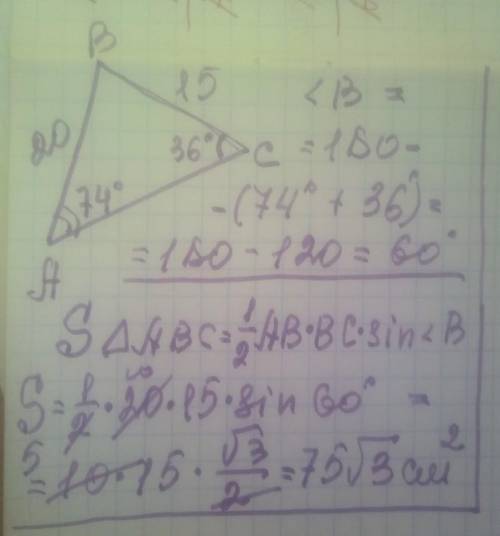 B
15 <B =
20 36° C = 180 -
74° - (74° + 36°) =
A = 180 - 120 = 60°
S ΔABC = 1/2 AB·BC·sin<B
S = 1/2 · 20 · 15 · sin 60° =
10
5
= 10 · 15 · √3/2 = 75√3 см²